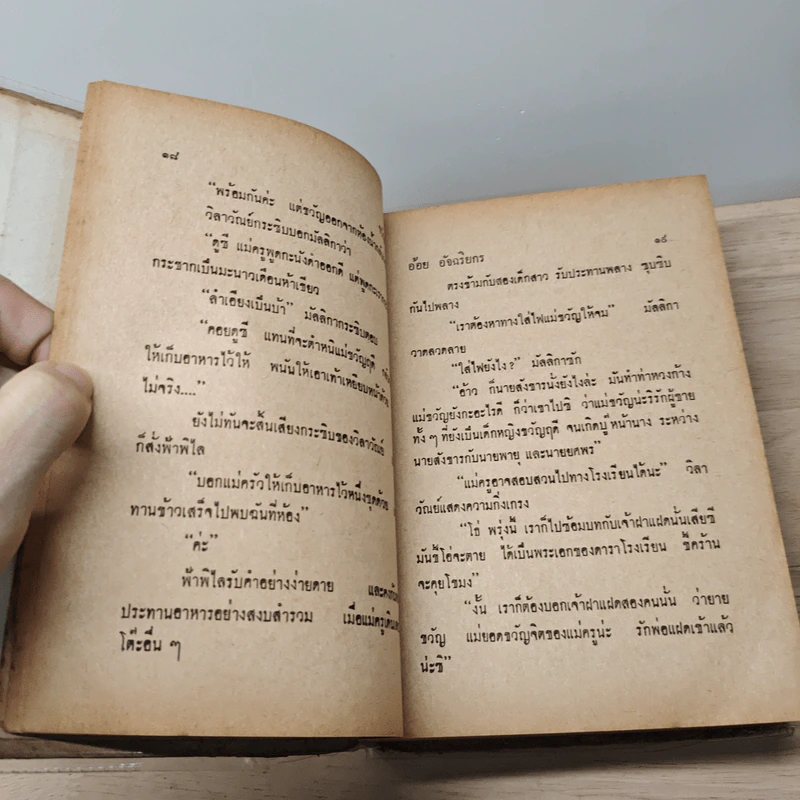 ๑๘
“พร้อมกันค่ะ แต่ขวัญออกจากห้องน้ำ
วิลาวัณย์กระซิบบอกมัลลิกาว่า
“ดูซี แม่ครูพูดกะนังดำออกดี แต่พูดกะเรา
กระชากเป็นมะนาวเดือนห้าเชียว
“ลำเอียงเป็นบ้า” มัลลิกากระซิบตอบ
“คอยดูซี แทนที่จะตำหนิแม่ขวัญฤดี
ให้เก็บอาหารไว้ให้ พนันให้เอาเท้าเหยียบหน้าด้วย
ไม่จริง....”
ยังไม่ทันจะสิ้นเสียงกระซิบของวิลาวัณย์
ก็สั่งฟ้าพิไล
“บอกแม่ครัวให้เก็บอาหารไว้หนึ่งชุดด้วย
ทานข้าวเสร็จไปพบฉันที่ห้อง”
“ค่ะ”
ฟ้าพิไลรับคำอย่างง่ายดาย และคง
ประทานอาหารอย่างสงบสำรวม เมื่อแม่ครูเดิน
โต๊ะอื่น ๆ
อ้อย อัจฉริยกร ๑๙
ตรงข้ามกับสองเด็กสาว รับประทานพลาง ซุบซิบ
กันไปพลาง
“เราต้องหาทางใส่ไฟแม่ขวัญให้จม” มัลลิกา
วาดลวดลาย
“ใส่ไฟยังไง?” มัลลิกาซัก
“อ้าว ก็นายสังขารนั่งยังไงล่ะ มันทำท่าหวงก้าง
แม่ขวัญยังกะอะไรดี ก็ว่าเขาไปซิ ว่าแม่ขวัญน่ะริรักผู้ชาย
ทั้ง ๆ ที่ยังเป็นเด็กหญิงขวัญฤดี จนเกิดบู๊หน้านาง ระหว่าง
นายสังขารกับนายพายุ และนายยศพร”
“แม่ครูอาจสอบสวนไปทางโรงเรียนได้นะ” วิลา
วัณย์แสดงความกิ่งเกรง
“โธ่ พรุ่งนี้ เราก็ไปซ้อมบทกับเจ้าฝาแฝดนั่นเสียซี
มันขี้โอ่จะตาย ได้เป็นพระเอกของดาราโรงเรียน ขี้คร้าน
จะคุยโขมง”
“งั้น เราก็ต้องบอกเจ้าฝาแฝดสองคนนั้น ว่ายาย
ขวัญ แม่ยอดขวัญจิตของแม่ครูน่ะ รักพ่อแฝดเข้าแล้ว
น่ะซิ”